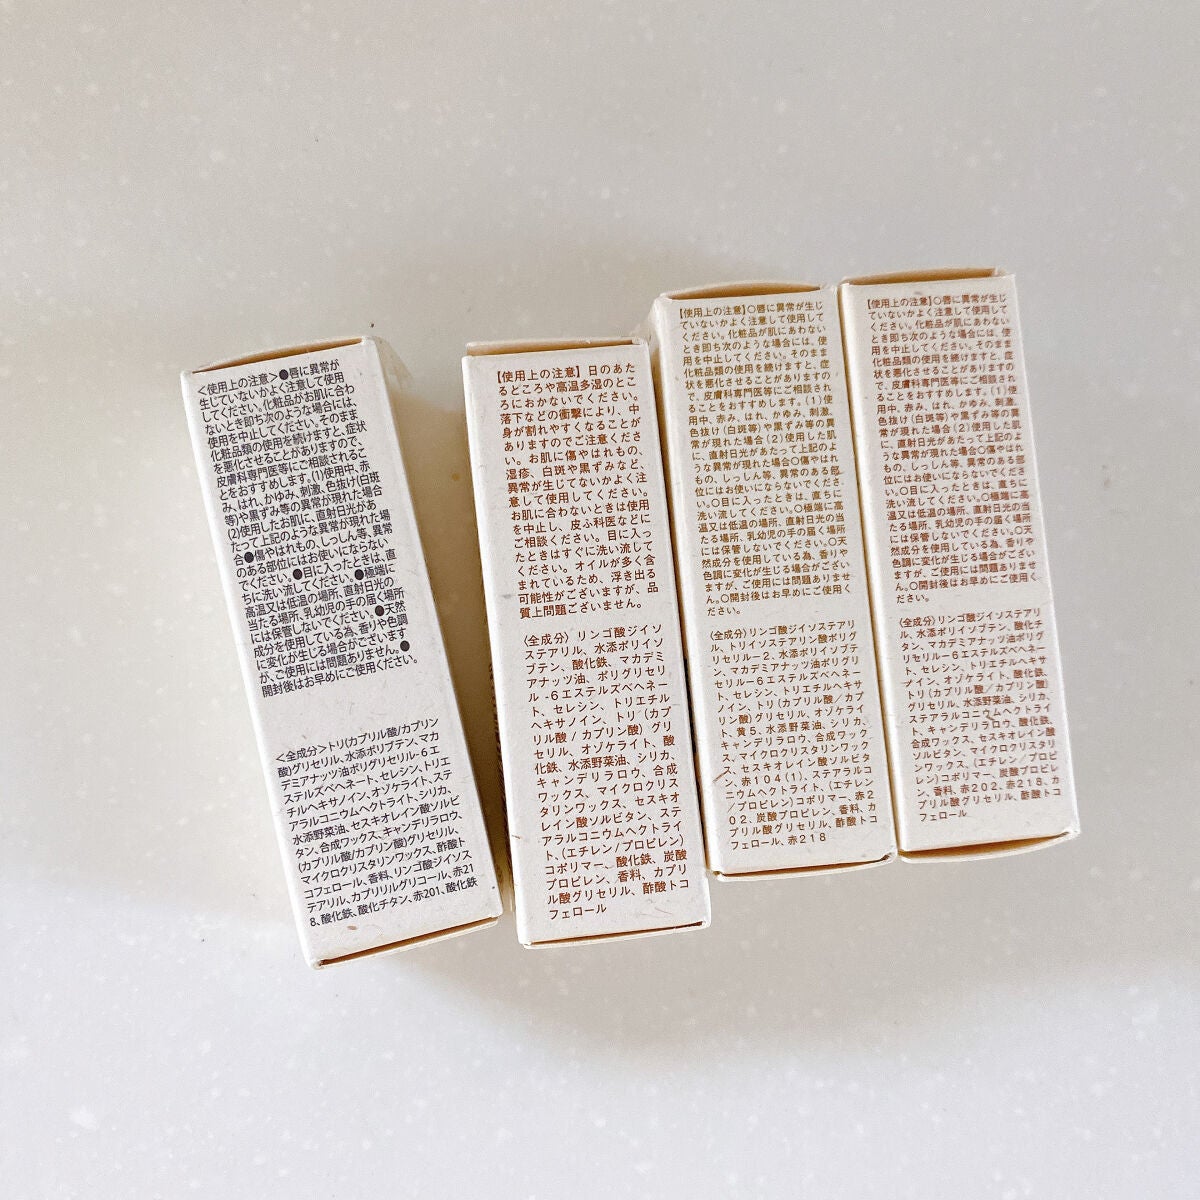 ＜使用上の注意＞●唇に異常が
生じていないかよく注意して使用
してください。化粧品がお肌に合わ
ないとき即ち次のような場合には、
使用を中止してください。そのまま
化粧品類の使用を続けますと、症状
を悪化させることがありますので、
皮膚科専門医等にご相談されるこ
とをおすすめします。(1)使用中、赤
み、はれ、かゆみ、刺激、色抜け(白斑
等)や黒ずみ等の異常が現れた場合
(2)使用したお肌に、直射日光があ
たって上記のような異常が現れた場
合●傷やはれもの、しっしん等、異常
のある部位にはお使いにならない
でください。●目に入ったときは、直
ちに洗い流してください。●極端に
高温又は低温の場所、直射日光の
当たる場所、乳幼児の手の届く場所
には保管しないでください。●天然
成分を使用している為、香りや色調
に変化が生じる場合がございます
が、ご使用には問題ありません。●
開封後はお早めにご使用ください。
＜全成分＞トリ(カプリル酸/カプリン
酸)グリセリル、水添ポリブテン、マカ
デミアナッツ油ポリグリセリル-6エ
ステルズベヘネート、セレシン、トリエ
チルヘキサノイン、オゾケライト、ステ
アラルコニウムヘクトライト、シリカ、
水添野菜油、セスキオレイン酸ソルビ
タン、合成ワックス、キャンデリラロウ、
(カプリル酸/カプリン酸)グリセリル、
マイクロクリスタリンワックス、酢酸ト
コフェロール、香料、リンゴ酸ジイソス
テアリル、カプリリルグリコール、赤21
8、酸化鉄、酸化チタン、赤201、酸化鉄
【使用上の注意】日のあた
るどころや高温多湿のとこ
ろにおかないでください。
落下などの衝撃により、中
身が割れやすくなることが
ありますのでご注意くださ
い。お肌に傷やはれもの、
湿疹、白斑や黒ずみなど、
異常が生じてないかよく注
意して使用してください。
お肌に合わないときは使用
を中止し、皮ふ科医などに
ご相談ください。目に入っ
たときはすぐに洗い流して
ください。オイルが多く含
まれているため、浮き出る
可能性がございますが、品
質上問題ございません。
〈全成分〉リンゴ酸ジイソ
ステアリル、水添ポリイソ
ブテン、酸化鉄、マカデミ
アナッツ油、ポリグリセリ
ル-6エステルズベヘネー
ト、セレシン、トリエチル
ヘキサノイン、トリ(カプリ
ル酸/カプリン酸)グリ
セリル、オゾケライト、酸
化鉄、水添野菜油、シリカ、
キャンデリラロウ、合成
ワックス、マイクロクリス
タリンワックス、セスキオ
レイン酸ソルビタン、ステ
アラルコニウムヘクトライ
ト、(エチレン/プロピレン)
コポリマー、酸化鉄、炭酸
プロピレン、香料、カプリ
ル酸グリセリル、酢酸トコ
フェロール
【使用上の注意】〇唇に異常が生じ
ていないかよく注意して使用して
ください。化粧品が肌にあわない
とき即ち次のような場合には、使
用を中止してください。そのまま
化粧品類の使用を続けますと、症
状を悪化させることがありますの
で、皮膚科専門医等にご相談され
ることをおすすめします。(1)使
用中、赤み、はれ、かゆみ、刺激、
色抜け(白斑等)や黒ずみ等の異
常が現れた場合(2)使用した肌
に、直射日光があたって上記のよ
うな異常が現れた場合〇傷やはれ
もの、しっしん等、異常のある部
位にはお使いにならないでくださ
い。〇目に入ったときは、直ちに
洗い流してください。〇極端に高
温又は低温の場所、直射日光の当
たる場所、乳幼児の手の届く場所
には保管しないでください。〇天
然成分を使用している為、香りや
色調に変化が生じる場合がござい
ますが、ご使用には問題ありませ
ん。〇開封後はお早めにご使用く
ださい。
〈全成分〉リンゴ酸ジイソステアリ
ル、トリイソステアリン酸ポリグリ
セリル-2、水添ポリイソブテン
、マカデミアナッツ油ポリグリセ
リル-6エステルズベヘネー
ト、セレシン、トリエチルヘキサ
ノイン、トリ(カプリル酸/カプ
リン酸)グリセリル、オゾケライ
ト、黄5、水添野菜油、シリカ、
キャンデリラロウ、合成ワック
ス、マイクロクリスタリンワック
ス、セスキオレイン酸ソルビタ
ン、赤104(1)、ステアラルコ
ニウムヘクトライト、(エチレン
/プロピレン)コポリマー、赤2
02、炭酸プロピレン、香料、カ
プリル酸グリセリル、酢酸トコ
フェロール、赤218
【使用上の注意】〇唇に異常が生じ
ていないかよく注意して使用して
ください。化粧品が肌にあわない
とき即ち次のような場合には、使
用を中止してください。そのまま
化粧品類の使用を続けますと、症
状を悪化させることがありますの
で、皮膚科専門医等にご相談され
ることをおすすめします。(1)使
用中、赤み、はれ、かゆみ、刺激、
色抜け(白斑等)や黒ずみ等の異
常が現れた場合(2)使用した肌
に、直射日光があたって上記のよ
うな異常が現れた場合〇傷やはれ
もの、しっしん等、異常のある部
位にはお使いにならないでくださ
い。〇目に入ったときは、直ちに
洗い流してください。〇極端に高
温又は低温の場所、直射日光の当
たる場所、乳幼児の手の届く場所
には保管しないでください。〇天
然成分を使用している為、香りや
色調に変化が生じる場合がござい
ますが、ご使用には問題ありませ
ん。〇開封後はお早めにご使用く
ださい。
〈全成分〉リンゴ酸ジイソステアリ
ル、水添ポリイソブテン、酸化チ
タン、マカデミアナッツ油ポリグ
リセリル-6エステルズベヘネー
ト、セレシン、トリエチルヘキサ
ノイン、オゾケライト、酸化鉄、
トリ(カプリル酸/カプリン酸)
グリセリル、水添野菜油、シリカ、
ステアラルコニウムヘクトライ
ト、キャンデリラロウ、酸化鉄、
合成ワックス、セスキオレイン酸
ソルビタン、マイクロクリスタリ
ンワックス、(エチレン/プロピ
レン)コポリマー、炭酸プロピレ
ン、香料、赤202、赤218、カ
プリル酸グリセリル、酢酸トコ
フェロール